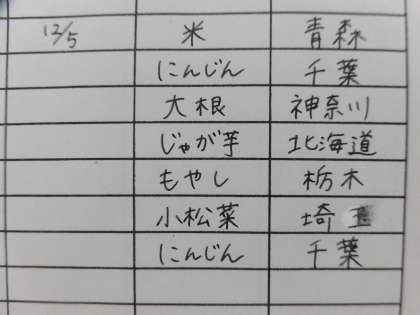 12/5 米 青森
にんじん 千葉
大根 神奈川
じゃが芋 北海道
もやし 栃木
小松菜 埼玉
にんじん 千葉